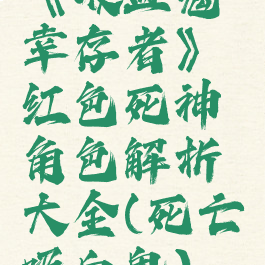 《吸血鬼
幸存者》
红色死神
角色解析
大全(死亡